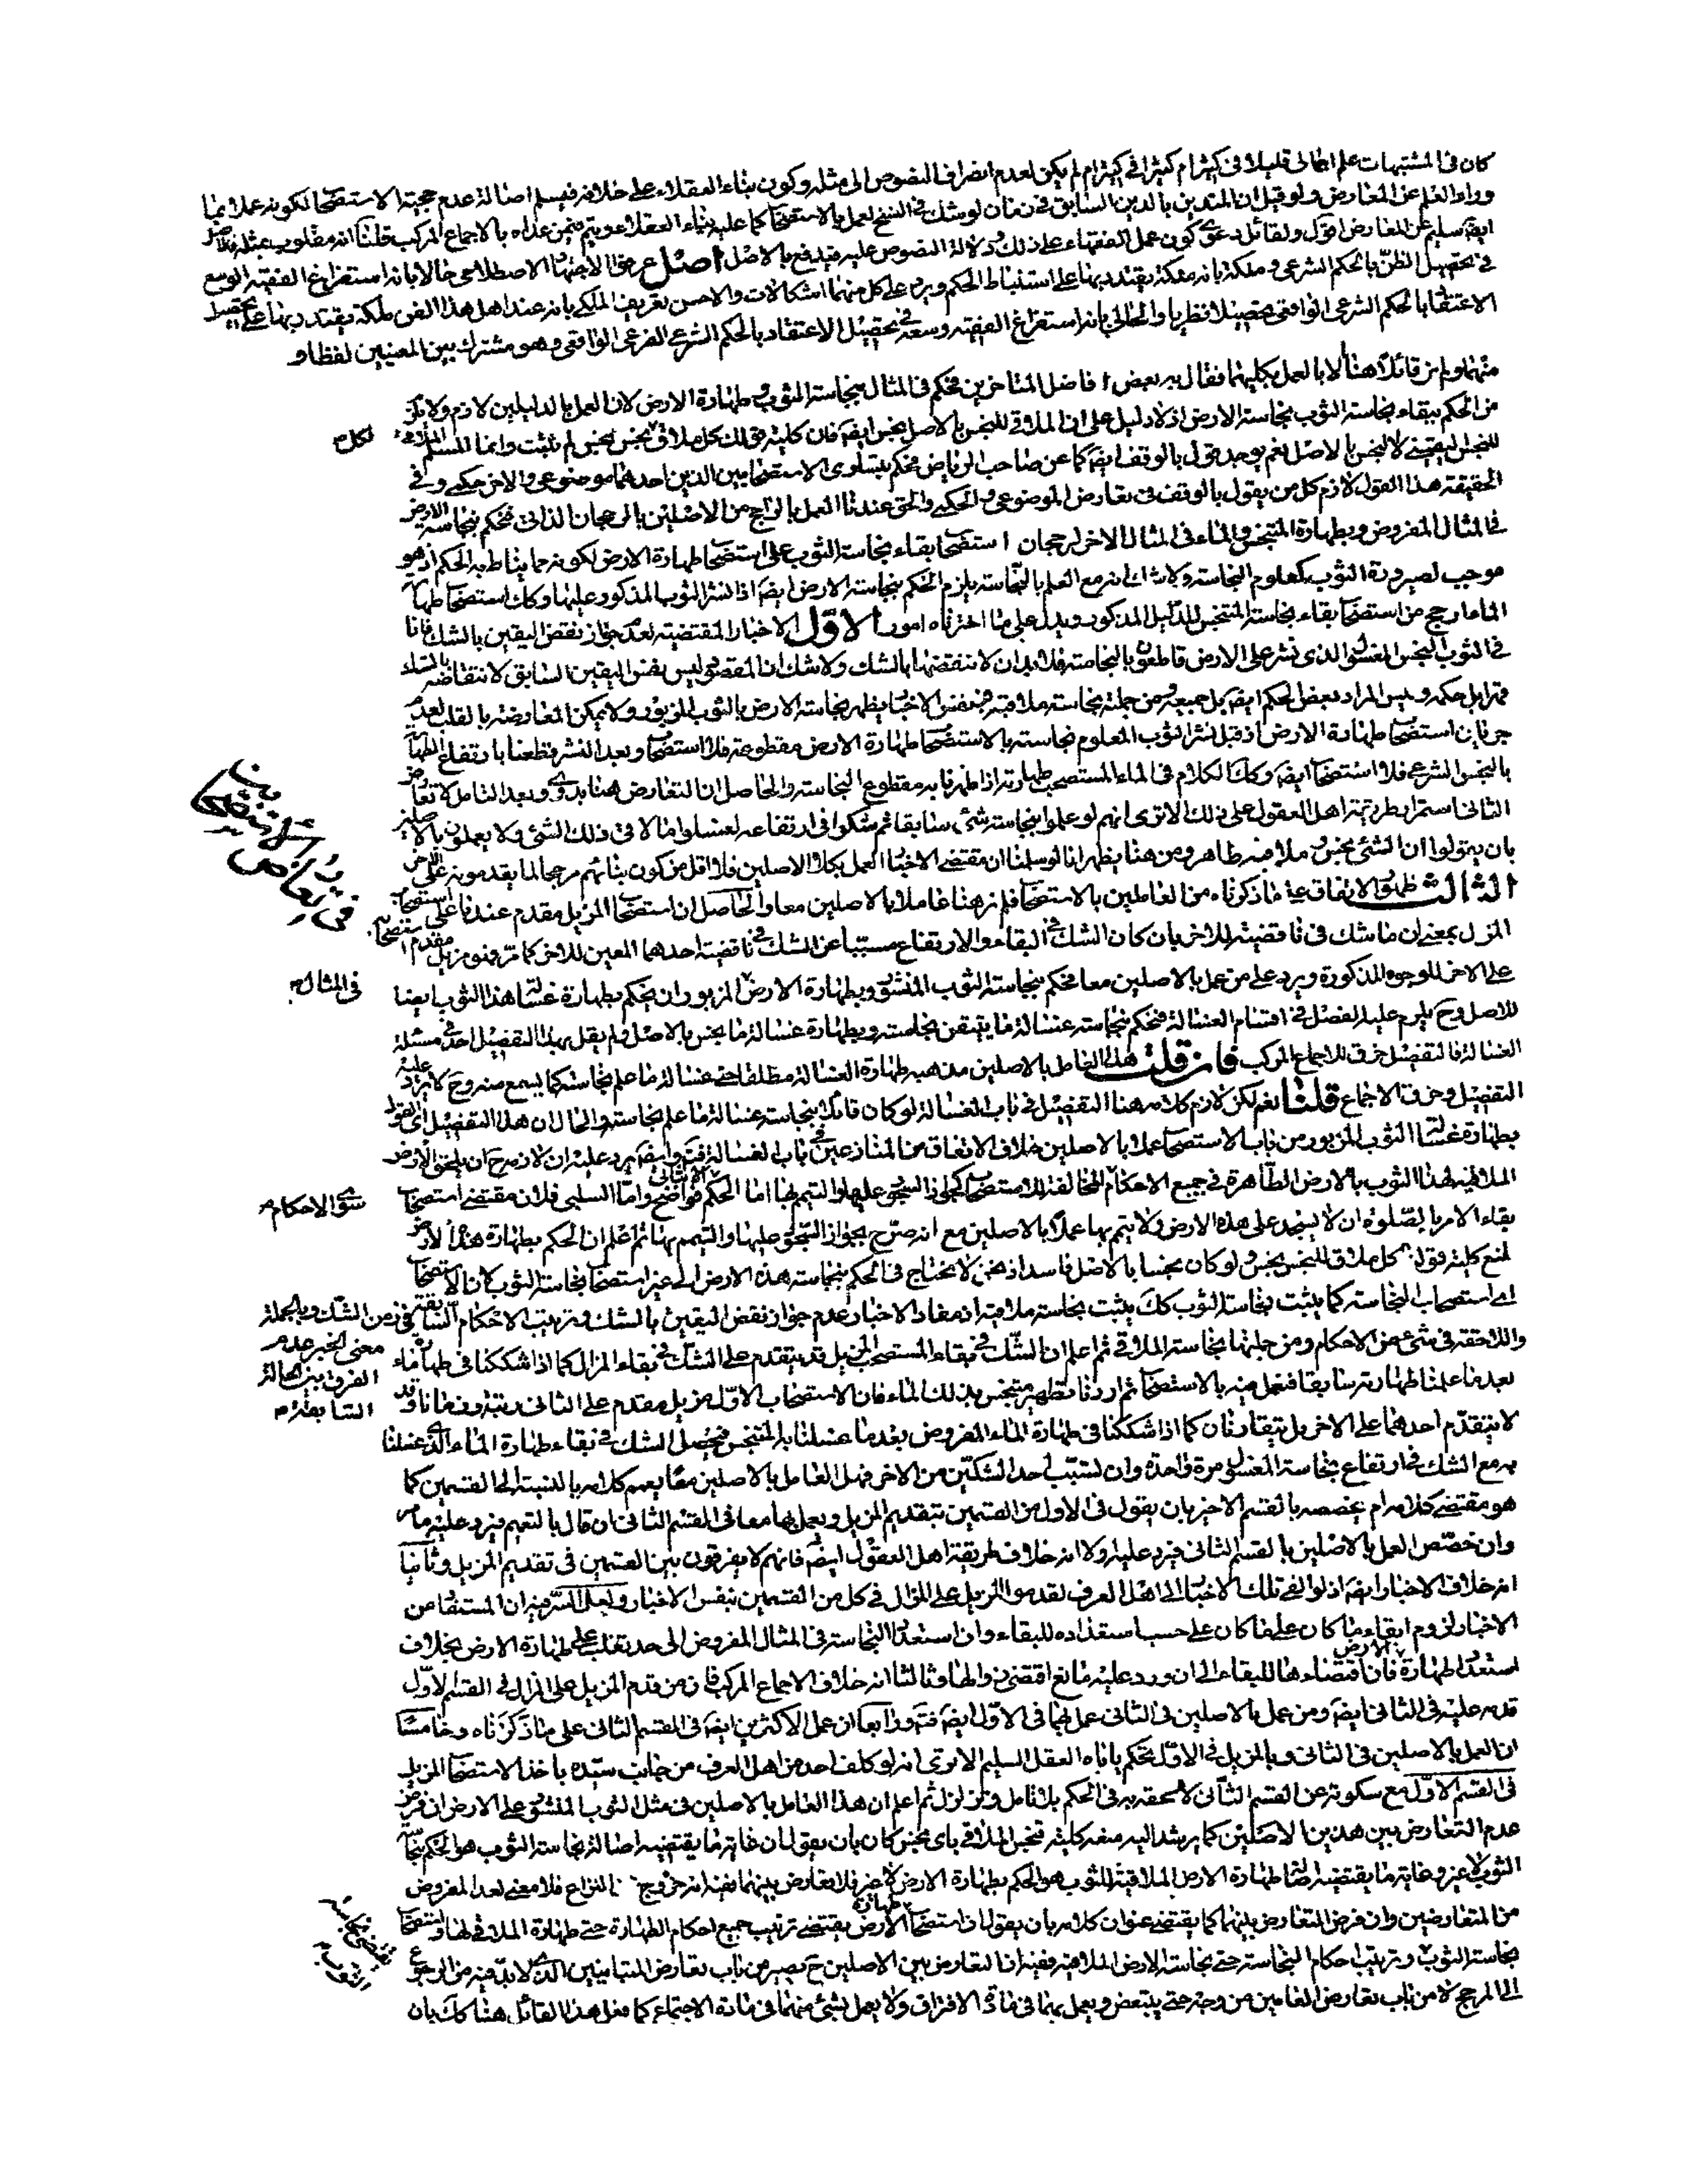 كان فى المشتبهات علم اجمالى قليلا فى كثير ام كثيرا فى كثير ام لم يكن لعدم انصراف النصوص الى مثله وكون بناء العقلاء على خلافه فيسلم اصالة عدم حجية الاستصحاب لكونه عملا بما
وراء العلم عن المعارض ولو قيل ان المتدين بالدين السابق فى زمان لو شك فى النسخ لعمل بالاستصحاب كما عليه بناء العقلاء ويتم فيمن عداه بالاجماع المركب قلنا انه مقلوب بمثله
ايضا سليم عن المعارض اقول ولقائل دعوى كون عمل الفقهاء على ذلك ودلالة النصوص عليه فيدفع بالاصل اصل عرفوا الاجتهاد الاصطلاحى حالا بانه استفراغ الفقيه الوسع
فى تحصيل الظن بالحكم الشرعى وملكة بانه ملكة يقتدر بها على استنباط الحكم ويرد على كل منهما اشكالات والاحسن تعريف الملكى بانه عند اهل هذا الفن ملكة يقتدر بها على تحصيل
الاعتقاد بالحكم الشرعى الواقعى تحصيلا نظريا والحالى بانه استفراغ الفقيه وسعه فى تحصيل الاعتقاد بالحكم الشرعى الفرعى الواقعى وهو مشترك بين المعنيين لفظا و
منهما ولم نر قائلا هنا الا بالعمل بكليهما فقال به بعض افاضل المتاخرين فحكم فى المثال بنجاسة الثوب وطهارة الارض لان العمل بالدليلين لازم ولا يلزم
من الحكم ببقاء نجاسة الثوب نجاسة الارض اذ لا دليل على ان الملاقى للنجس بالاصل نجس ايضا فان كلية قولك كل ملاق نجس نجس لم يثبت وانما المسلم
للنجس اليقينى لا النجس بالاصل نعم يوجد قول بالوقف ايضا كما عن صاحب الرياض فحكم بتساوى الاستصحابين الذين احدهما موضوعى والاخر حكمى وفى
الحقيقة هذا القول لازم كل من يقول بالوقف فى تعارض الموضوعى والحكمى والحق عندنا العمل بالراجح من الاصلين بالرجحان الذاتى فحكم بنجاسة الارض
فى المثال المفروض وبطهارة المتنجس والماء فى المثال الاخر لرجحان استصحاب بقاء نجاسة الثوب على استصحاب طهارة الارض لكونه مما يناط به الحكم اذ هو
موجب لصيرورة الثوب كمعلوم النجاسة ولا شك انه مع العلم بالنجاسة يلزم الحكم بنجاسة الارض ايضا اذا نشر الثوب المذكور عليها وكذا استصحاب طهارة
الماء ارجح من استصحاب بقاء نجاسة المتنجس للدليل المذكور ويدل على ما اخترناه امور الاول الاخبار المقتضية لعدم جواز نقض اليقين بالشك فانا
فى الثوب النجس المغسول الذى نشر على الارض قاطعون بالنجاسة فلا بد ان لا ننقضها بالشك ولا شك ان المقصود ليس نفس اليقين السابق لانتقاضه بالشك
قهرا بل حكمه وليس المراد بعض الحكم ايضا بل جميعه ومن جملته نجاسة ملاقيه فبنفس الاخبار يظهر نجاسة الارض بالثوب المزبور ولا يمكن المعارضة بالقلب لعدم
جريان استصحاب طهارة الارض اذ قبل نشر الثوب المعلوم نجاسته بالاستصحاب طهارة الارض مقطوعة فلا استصحاب وبعد النشر قطعنا بارتفاع الطهارة
بالنجس الشرعى فلا استصحاب ايضا وكذا الكلام فى الماء المستصحب طهارته اذا طهرنا به مقطوع النجاسة والحاصل ان التعارض هنا بدوى وبعد التامل لا تعارض
الثانى استمرار طريقة اهل العقول على ذلك الا ترى انهم لو علموا بنجاسة شئ سابقا ثم شكوا فى ارتفاعه لغسلوا ما لاقى ذلك الشئ ولا يعملون بالاصلين
بان يقولوا ان الشئ نجس وملاقيه طاهر ومن هنا يظهر انا لو سلمنا ان مقتضى الاخبار العمل بكلا الاصلين فلا اقل من كون بنائهم مرجحا لما يقدمونه على الاخر
الثالث ظهور الاتفاق على ما ذكرناه من العاملين بالاستصحاب فلم نر هنا عاملا بالاصلين معا والحاصل ان استصحاب المزيل مقدم عندنا على استصحاب
المزال بمعنى ان ما شك فى ناقضيته للاخر بان كان الشك فى البقاء والارتفاع مسببا عن الشك فى ناقضية احدهما المعين للاخر كما مر فهو مزيل مقدم
على الاخر للوجوه المذكورة ويرد على من عمل بالاصلين معا فحكم بنجاسة الثوب المنشور وبطهارة الارض المزبور ان يحكم بطهارة غسالة هذا الثوب ايضا
فى المثال
للاصل وح يلزم عليه الفصل فى اقسام الغسالة فنحكم بنجاسة غسالة ما يتيقن نجاسته وبطهارة غسالة ما نجس بالاصل ولم يقل بهذا التفصيل احد فى مسئلة
الغسالة فالتفصيل خرق للاجماع المركب فان قلت هذا العامل بالاصلين مذهبه طهارة الغسالة مطلقا حتى غسالة ما علم نجاسته كما يسمع منه وح لا يرد عليه
التفصيل وخرق الاجماع قلنا نعم لكن لازم كلامه هنا التفصيل فى باب الغسالة لو كان قائلا بنجاسة غسالة ما علم نجاسته والحال ان هذا التفصيل اى القول
بطهارة غسالة الثوب المزبور من باب الاستصحاب عملا بالاصلين خلاف الاتفاق من المتنازعين فى باب الغسالة فت وايضا يرد عليه ان لازمه ح ان يلحق الارض
الملاقية لهذا الثوب بالارض الطاهرة فى جميع الاحكام المخالفة للاستصحاب كجواز السجود عليها والتيمم بها اما الحكم فواضح واما السلبى فلان مقتضى استصحاب
سوى الاحكام
بقاء الامر بالصلوة ان لا يسجد على هذه الارض ولا يتيمم بها عملا بالاصلين مع انه صرح بجواز السجود عليها والتيمم بها ثم اعلم ان الحكم بطهارة هذا الارض
لمنع كلية قوله كل ملاق للنجس نجس ولو كان نجسا بالاصل فاسد اذ نحن لا نحتاج فى الحكم بنجاسة هذه الارض الى غير استصحاب نجاسة الثوب كان الاستصحاب
اى استصحاب النجاسة كما يثبت نجاسة الثوب كك يثبت نجاسة ملاقيه اذ مفاد الاخبار عدم جواز نقض اليقين بالشك وترتيب الاحكام السابقة فى زمن الشك وبالجملة
معنى الخبر عدم
الفرق بين الحالة
السابقة
بعد ما علمنا طهارته سابقا فنعمل فيه بالاستصحاب ثم اردنا تطهير متنجس بذلك الماء فان الاستصحاب الاول مزيل مقدم على الثانى رتبة وزمانا وقد
لا يتقدم احدهما على الاخر بل يتقارنان كما اذا شككنا فى طهارة الماء المفروض بعد ما غسلنا به المتنجس فيحصل الشك فى بقاء طهارة الماء الذى غسلنا
به مع الشك فى ارتفاع نجاسة المغسول مرة واحدة وان تسبب احد الشكين من الاخر فهل العامل بالاصلين معا يعم كلامه بالنسبة الى القسمين كما
هو مقتضى كلامه ام يخصصه بالقسم الاخير بان يقول فى الاول من القسمين بتقديم المزيل ويعمل بهما معا فى القسم الثانى ان قال بالتعميم فيرد عليه ما مر
وان خصص العمل بالاصلين بالقسم الثانى فيرد عليه اولا انه خلاف طريقة اهل العقول ايضا فانهم لا يفرقون بين القسمين فى تقديم المزيل وثانيا
انه خلاف الاخبار ايضا اذ لو القى تلك الاخبار الى اهل العرف لقدموا المزيل على المزال فى كل من القسمين بنفس الاخبار ولعل السر فيه ان المستفاد من
الاخبار لزوم ابقاء ما كان على ما كان على حسب استعداده للبقاء وان استعداد النجاسة فى المثال المفروض الى حد يغلب على طهارة الارض بخلاف
استعداد طهارة الارض فان اقتضاءها للبقاء الى ان ورد عليه مانع اقتضى زوالها وثالثا انه خلاف الاجماع المركب فان من قدم المزيل على المزال فى القسم الاول
قدمه عليه فى الثانى ايضا ومن عمل بالاصلين فى الثانى عمل بهما فى الاول ايضا فت ورابعا ان عمل الاكثرين ايضا فى القسم الثانى على ما ذكرناه وخامسا
ان العمل بالاصلين فى الثانى وبالمزيل فى الاول تحكم ياباه العقل السليم الا ترى انه لو كلف احد من اهل العرف من جانب سيده باخذ الاستصحاب المزيل
فى القسم الاول مع سكوته عن القسم الثانى لالحقه به فى الحكم بلا تامل وتزلزل ثم اعلم ان هذا العامل بالاصلين فى مثل الثوب المنشور على الارض ان فرض
عدم التعارض بين هذين الاصلين كما يرشد اليه منعه كلية تنجس الملاقى باى نجس كان بان يقول ان غاية ما يقتضيه اصالة نجاسة الثوب هو الحكم بنجاسة
الثوب لا غير وغاية ما يقتضيه اصالة طهارة الارض الملاقية للثوب هو الحكم بطهارة الارض لا غير فلا تعارض بينهما ففيه انه خروج عن النزاع فلا معنى لعد المفروض
من المتعارضين وان فرض التعارض بينهما كما يقتضى عنوان كلامه بان يقول ان استصحاب طهارة الارض يقتضى ترتيب جميع احكام الطهارة حتى طهارة الملاقى لها واستصحاب
نجاسة الثوب وترتيب احكام النجاسة حتى نجاسة الارض الملاقية ففيه ان التعارض بين الاصلين ح يصير من باب تعارض المتباينين الذى لا بد فيه من الرجوع
الى المرجح لا من باب تعارض العامين من وجه حتى يتبعض ويعمل بهما فى مادة الافتراق ولا يعمل بشئ منهما فى مادة الاجتماع كما فعل هذا القائل هنا كك بان